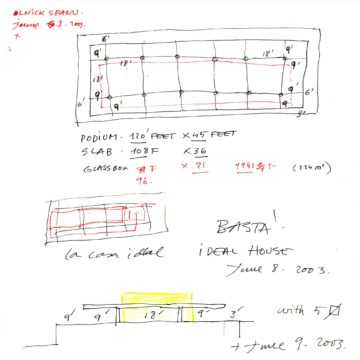 OLNICK SPANU.
June 8. 2003.
+
6'
9' 18' 18' 9'
18'
9' 9'
6' 9' 9' 6'
3'
PODIUM. 120' FEET × 45 FEET
SLAB. 108 F × 36
GLASSBOX F × 21 (224 m²)
96.
la casa ideal
BASTA!
iDEAL HOUSE
June 8. 2003.
9' 9' 18' 9' 3'
with 5
+ June 9. 2003.